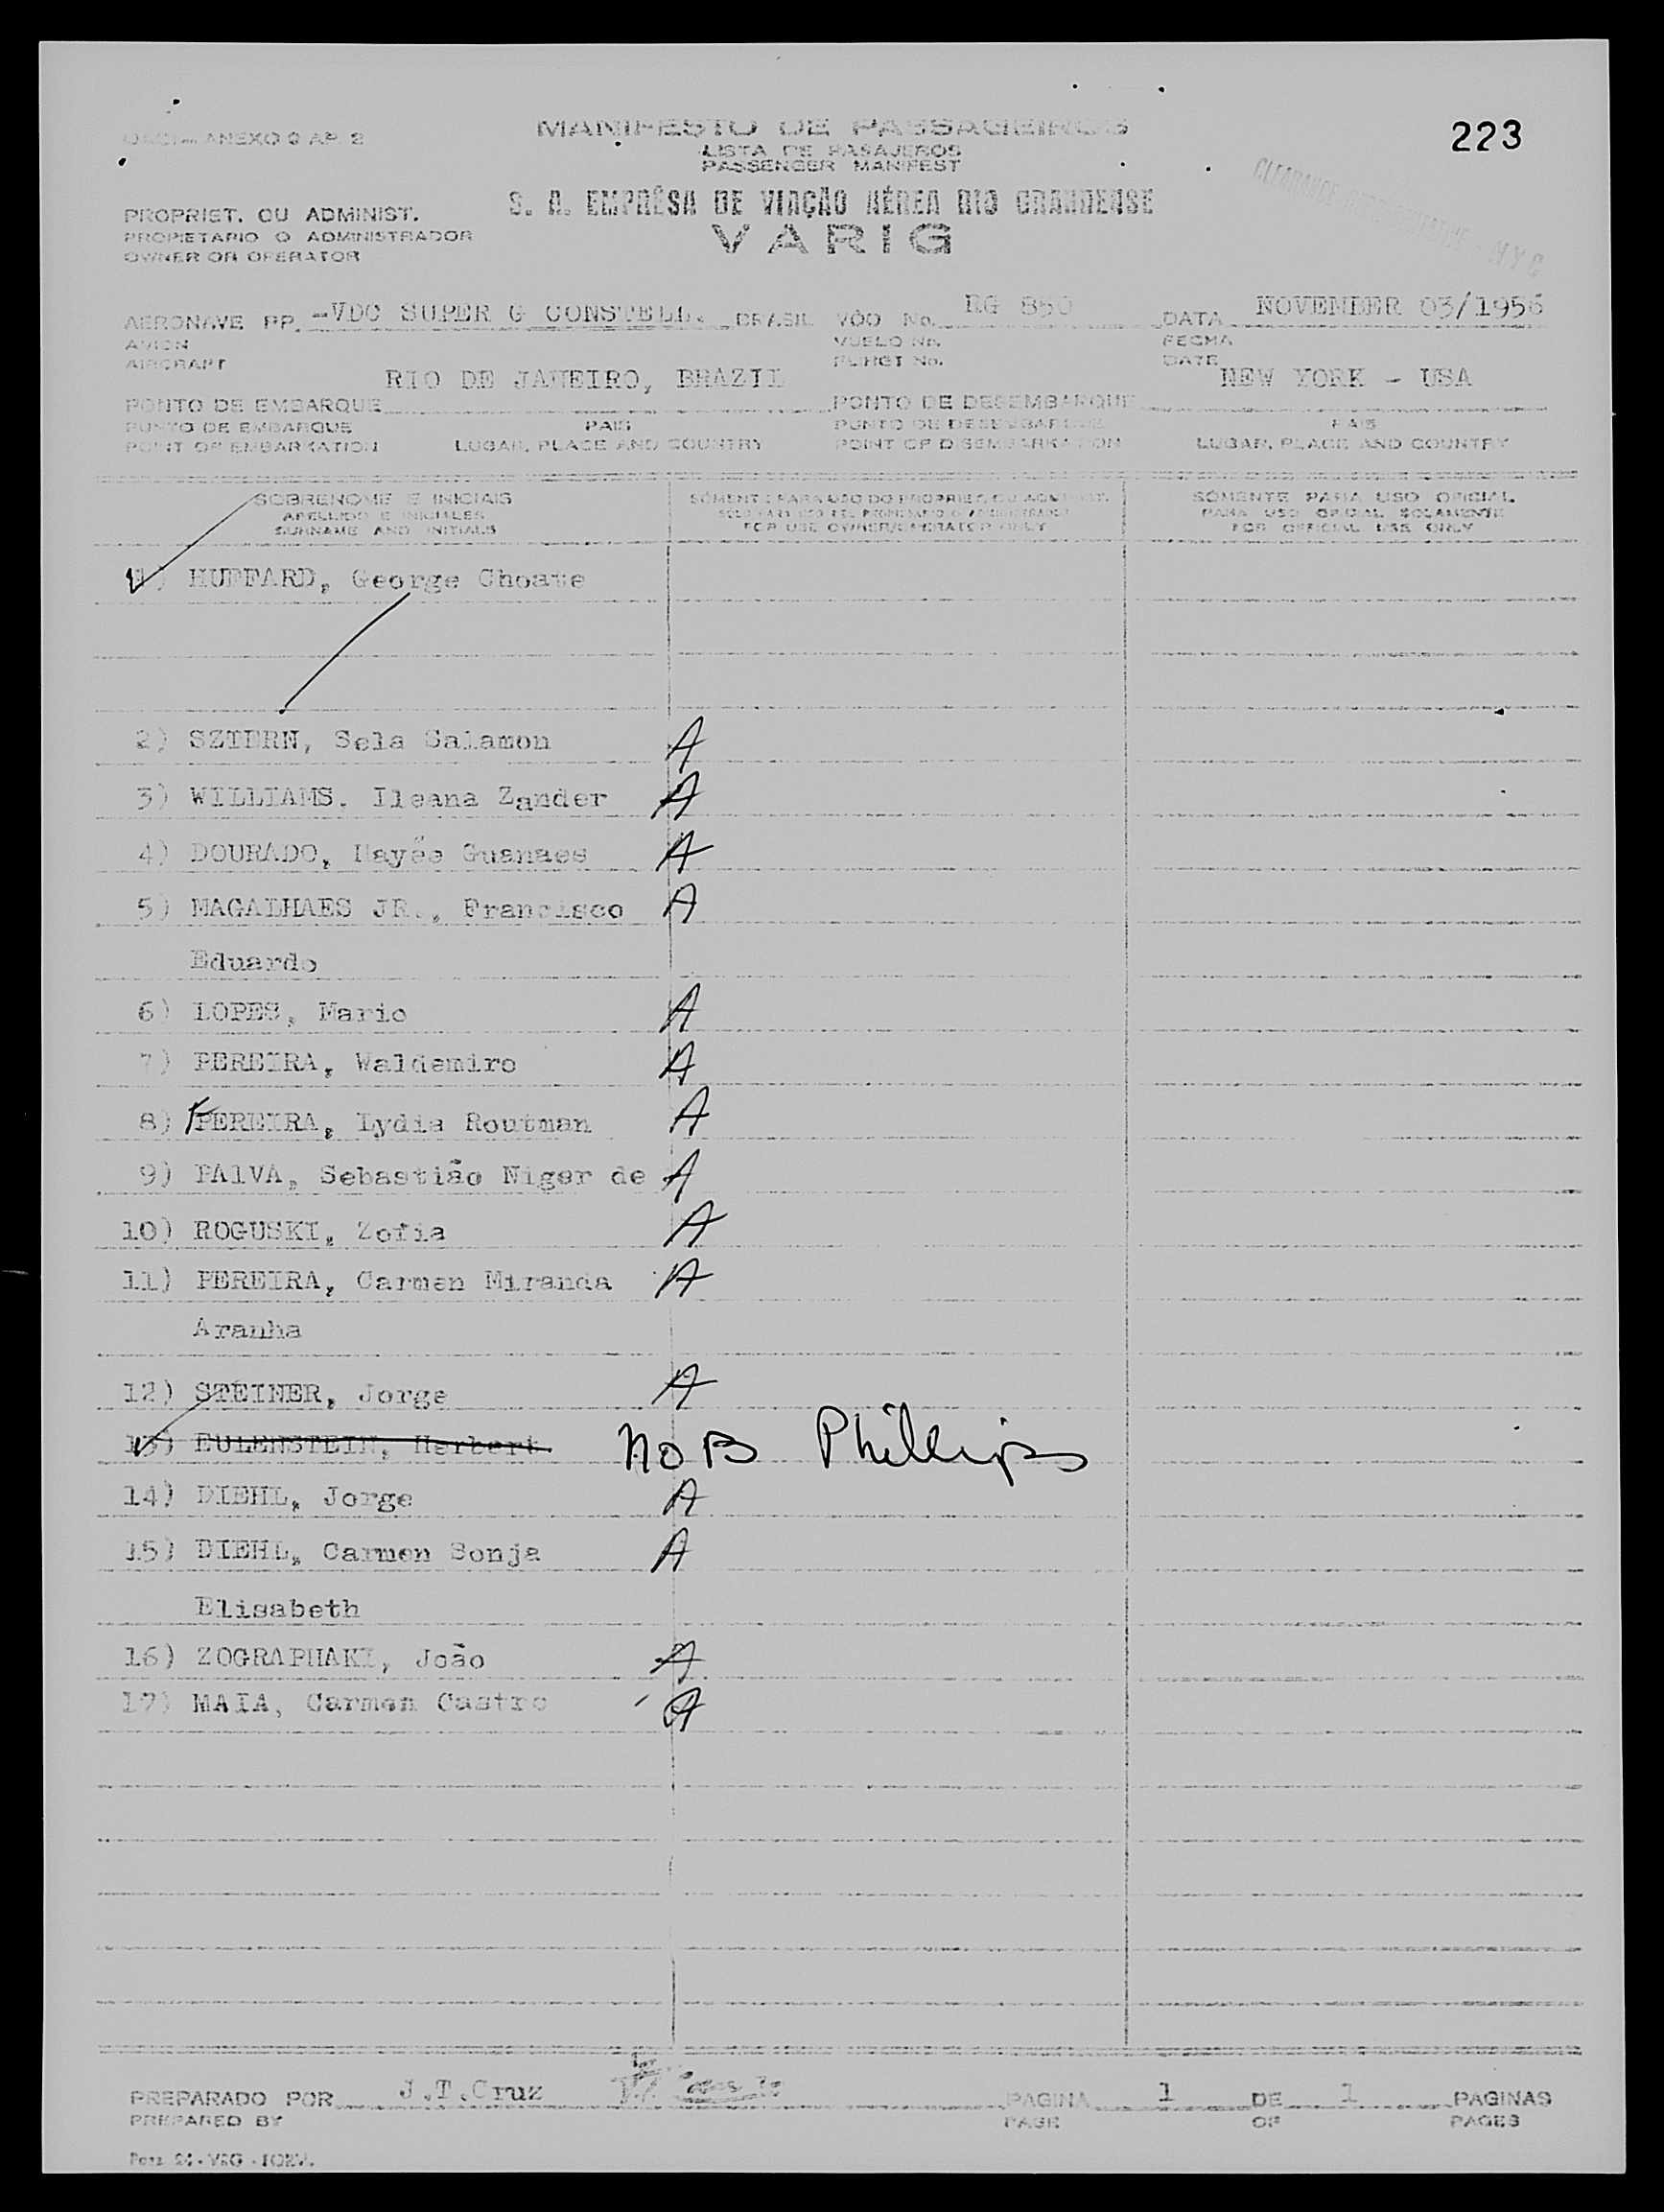 ANEXO 9 AP. 2
MANIFESTO DE PASSAGEIROS
LISTA DE PASAJEROS
PASSENGER MANIFEST
223
S. A. EMPRÊSA DE VIAÇÃO AÉREA RIO GRANDENSE
VARIG
PROPRIET. OU ADMINIST.
PROPIETARIO O ADMINISTRADOR
OWNER OR OPERATOR
AERONAVE PP. -VDC SUPER G CONSTELL. BRASIL VÔO No. RG 850 DATA NOVEMBER 03/1956
AVION VUELO No. FECHA
AIRCRAFT FLIHGT No. DATE
RIO DE JANEIRO, BRAZIL NEW YORK - USA
PONTO DE EMBARQUE PONTO DE DESEMBARQUE
PUNTO DE EMBARQUE PAIS PUNTO DE DESEMBARQUE PAIS
POINT OF EMBARKATION LUGAR, PLACE AND COUNTRY POINT OF DISEMBARKATION LUGAR, PLACE AND COUNTRY
SOBRENOME E INICIAIS SÓMENTE PARA USO DO PROPRIET. OU ADMINIST. SÓMENTE PARA USO OFICIAL
APELLIDO E INICIALES PARA USO OFICIAL SOLAMENTE
SURNAME AND INITIALS FOR USE OWNER/OPERATOR ONLY FOR OFFICIAL USE ONLY
1) HUFFARD, George Choate
2) SZTERN, Sela Salamon A
3) WILLIAMS, Ileana Zander A
4) DOURADO, Hayée Guanaes A
5) MAGALHAES JR., Francisco A
Eduardo
6) LOPES, Mario A
7) PEREIRA, Waldemiro A
8) PEREIRA, Lydia Routman A
9) PAIVA, Sebastião Niger de A
10) ROGUSKI, Zofia A
11) PEREIRA, Carmen Miranda A
Aranha
12) STEINER, Jorge A
13) EULENSTEIN, Herbert NOB Phillips
14) DIEHL, Jorge A
15) DIEHL, Carmen Sonja A
Elisabeth
16) ZOGRAPHAKI, João A
17) MAIA, Carmen Castro A
PREPARADO POR J.T.Cruz PAGINA 1 DE 1 PAGINAS
PREPARED BY PAGE OF PAGES